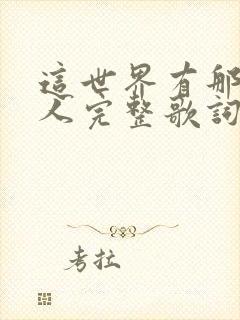 這世界有那
人完整歌詞
考拉